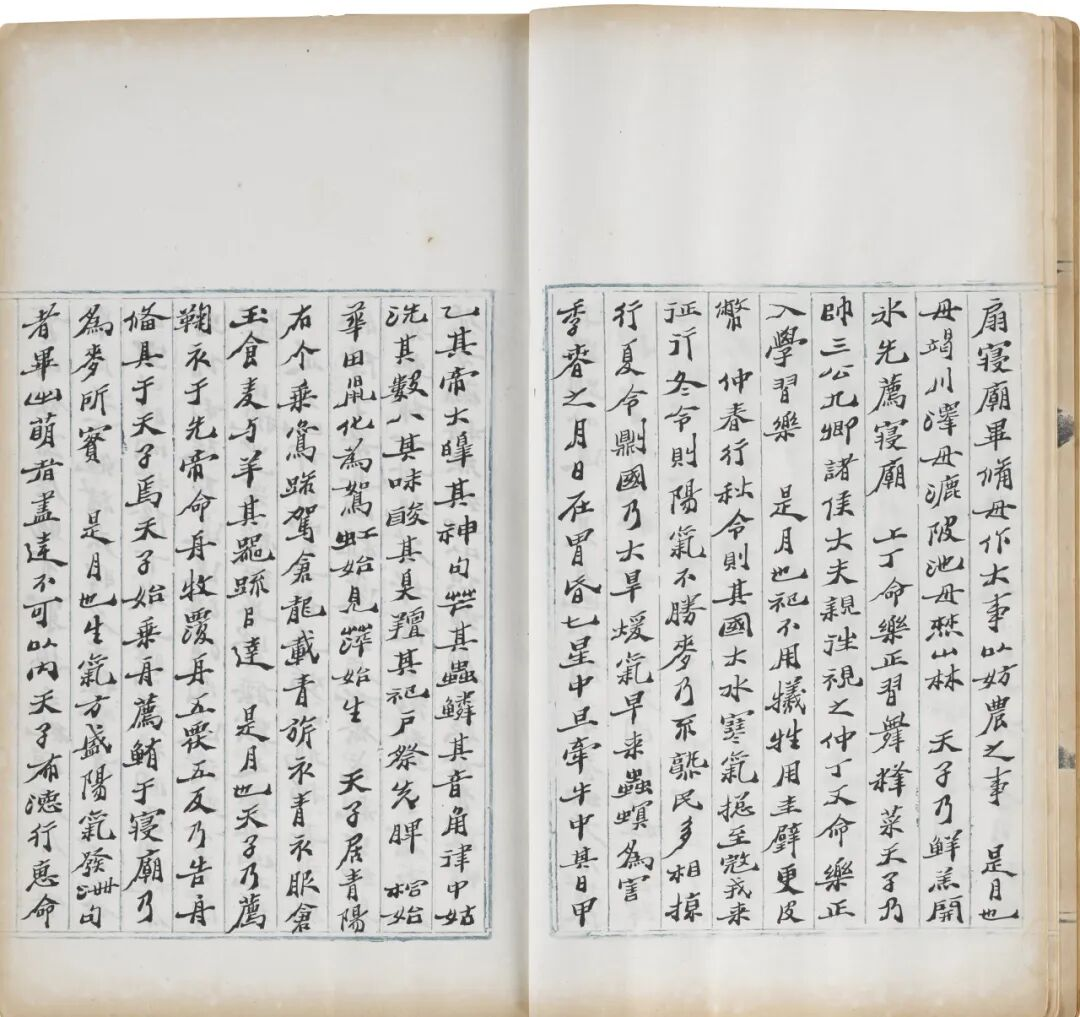 扇寢廟畢備毋作大事以妨農之事　是月也
毋竭川澤毋漉陂池毋焚山林　天子乃鮮羔開
冰先薦寢廟　上丁命樂正習舞釋菜天子乃
帥三公九卿諸侯大夫親往視之仲丁又命樂正
入學習樂　是月也祀不用犧牲用圭璧更皮
幣　仲春行秋令則其國大水寒氣揔至寇戎來
征行冬令則陽氣不勝麥乃不孰民多相掠
行夏令則國乃大旱煖氣早來蟲螟爲害
季春之月日在胃昏七星中旦牽牛中其日甲
乙其帝大皞其神句芒其蟲鱗其音角律中姑
洗其數八其味酸其臭羶其祀戶祭先脾　桐始
華田鼠化爲鴽虹始見蓱始生　天子居青陽
右个乘鸞路駕倉龍載青旂衣青衣服倉
玉食麦与羊其器疏㠯達　是月也天子乃薦
鞠衣于先帝命舟牧覆舟五覆五反乃告舟
備具于天子焉天子始乘舟薦鮪于寢廟乃
爲麥祈實　是月也生氣方盛陽氣發泄句
者畢出萌者盡達不可以內天子布德行惠命